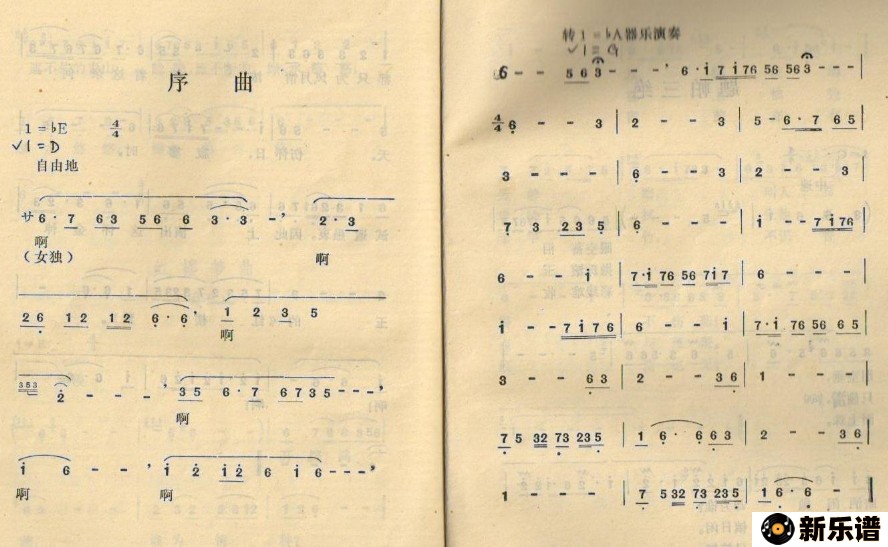 序 曲
1 = ♭E 4/4
✓1 = D
自由地
サ 6 · 7 6 3 5 6 6 3 · 3 - ʼ 2 · 3
啊 啊
(女独)
2 6 1 2 1 2 6 · 6 · ʼ 1 2 3 5
啊
3 5 3 2 - - - ʼ 3 5 6 · 7 6 7 3 5 - - - ʼ
啊
i 6 - - ʼ i 2 i 2 6 i 6 - - - ʼ
啊 啊
转 1 = ♭A 器乐演奏
✓1 = G
6 - - 5 6 3 - - - ʼ 6 · i 7 i 7 6 5 6 5 6 3 - - - |
4/4 6 - - 3 | 2 - - 3 | 5 6 · 7 6 5 |
3 - - - | 6 - - 3 | 2 - - 3 |
7 3 2 3 5 | 6 - - - | i - - 7 i 7 6 |
6 - - - | 7 · i 7 6 5 6 7 i 7 | 6 - - - |
i - - 7 i 7 6 | 6 - - i | 7 · i 7 6 5 6 6 5 |
3 - - 6 3 | 2 - - 3 6 | 1 - - - |
7 5 3 2 7 3 2 3 5 | 1 6 · 6 6 3 | 2 - - 3 6 |
1 - - - | 7 5 3 2 7 3 2 3 5 | 1 6 · 6 - - |
新乐谱